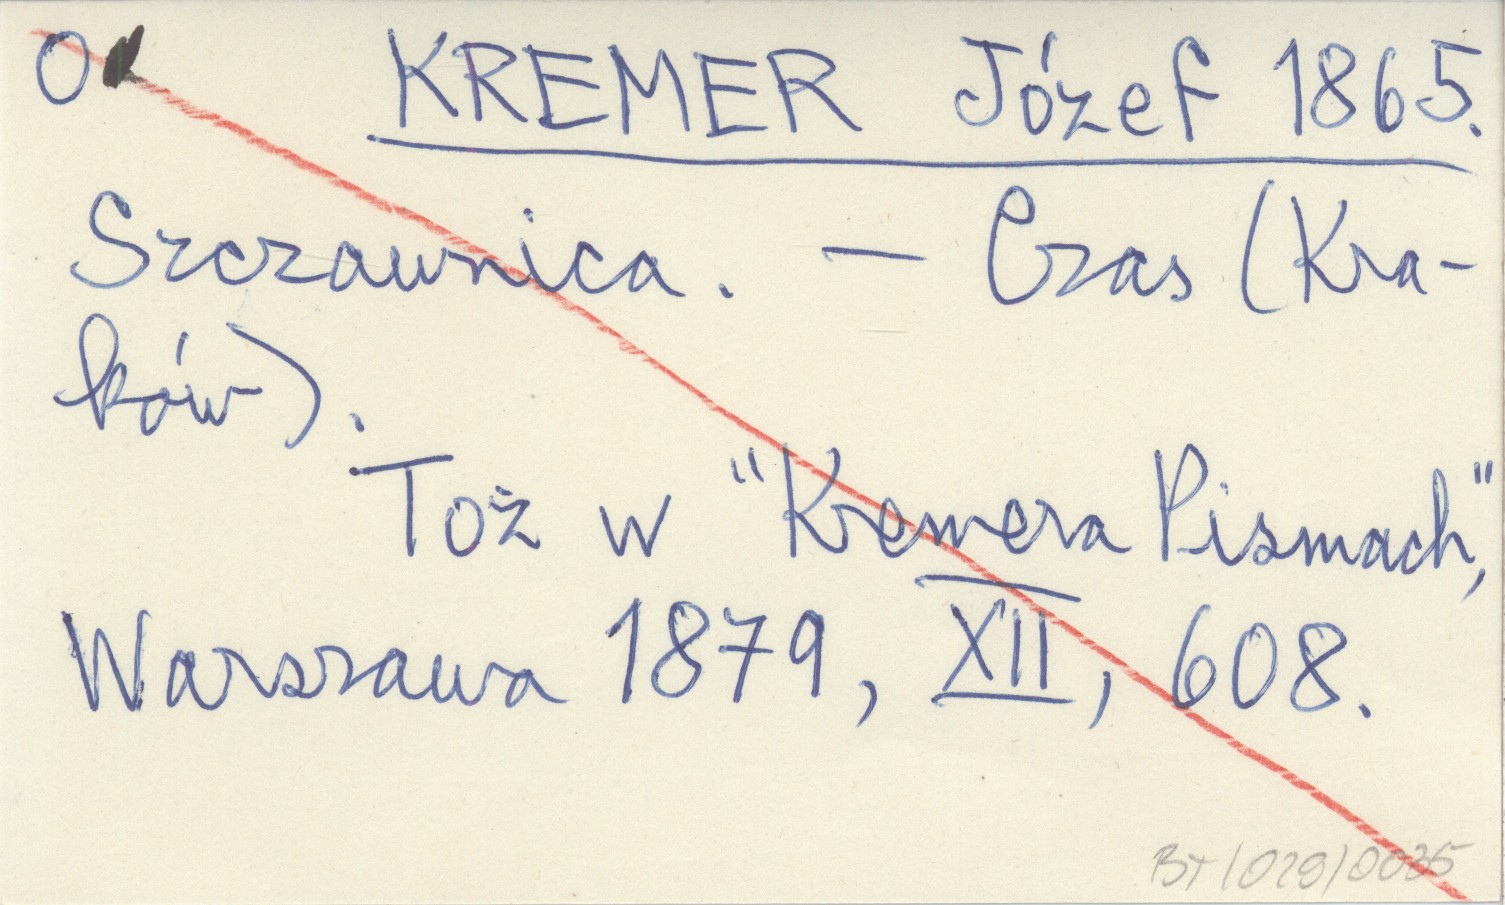 O KREMER Józef 1865.
Szczawnica. — Czas (Kra-
ków).
Toż w "Kremera Pismach",
Warszawa 1879, XII, 608.
BT/029/0035